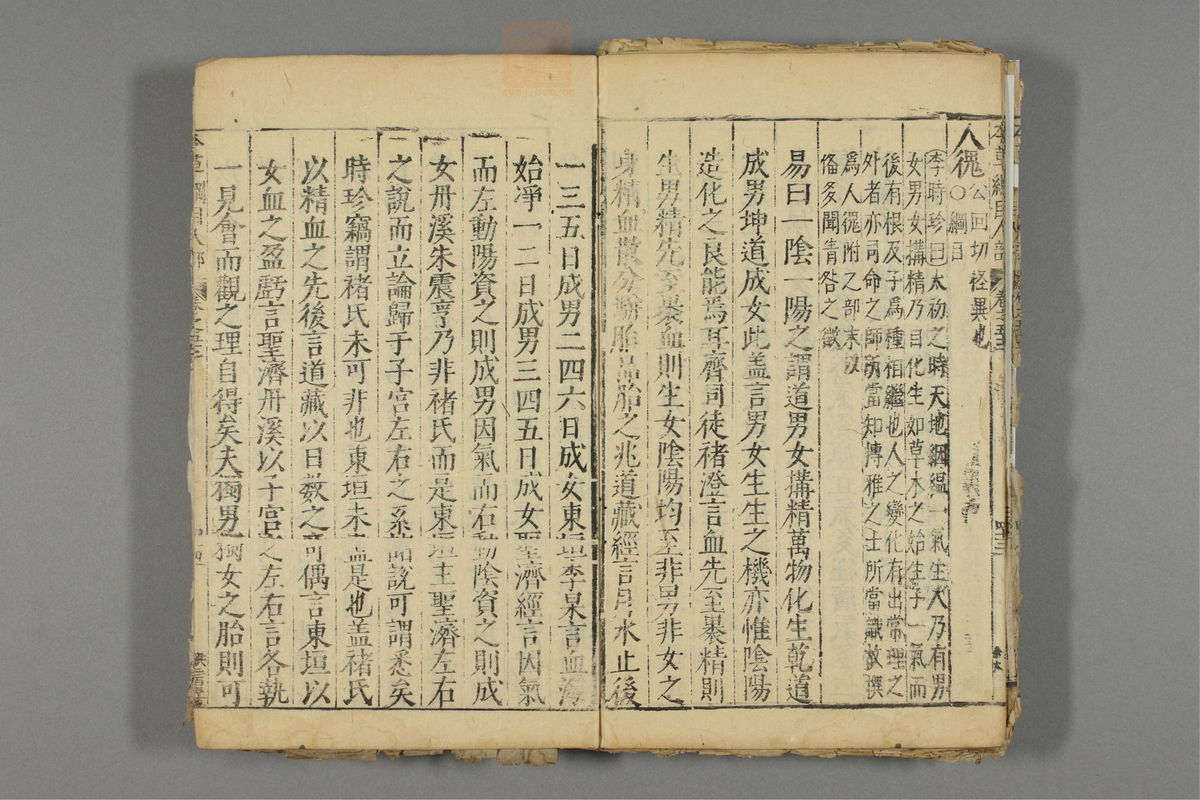 人傀公回切怪異也
○綱目
李時珍曰太初之時天地絪縕一氣生人乃有男
女男女搆精乃自化生如草木之始生子一氣而
後有根及子爲種相繼也人之變化有出常理之
外者亦司命之師所當知博雅之士所當識故撰
爲人傀附之部末以
偹多聞眚咎之徵
易曰一陰一陽之謂道男女搆精萬物化生乾道
成男坤道成女此盖言男女生生之機亦惟陰陽
造化之良能焉耳齊司徒褚澄言血先至褁精則
生男精先至褁血則生女陰陽均至非男非女之
身精血散分駢胎品胎之兆道藏經言月水止後
一三五日成男二四六日成女東垣李杲言血海
始凈一二日成男三四五日成女聖濟經言因氣
而左動陽資之則成男因氣而右動陰資之則成
女丹溪朱震亨乃非褚氏而是東垣主聖濟左右
之說而立論歸于子宮左右之系諸說可謂悉矣
時珍竊謂褚氏未可非也東垣未盡是也盖褚氏
以精血之先後言道藏以日數之奇偶言東垣以
女血之盈虧言聖濟丹溪以子宮之左右言各執
一見會而觀之理自得矣夫獨男獨女之胎則可
本草綱目人部